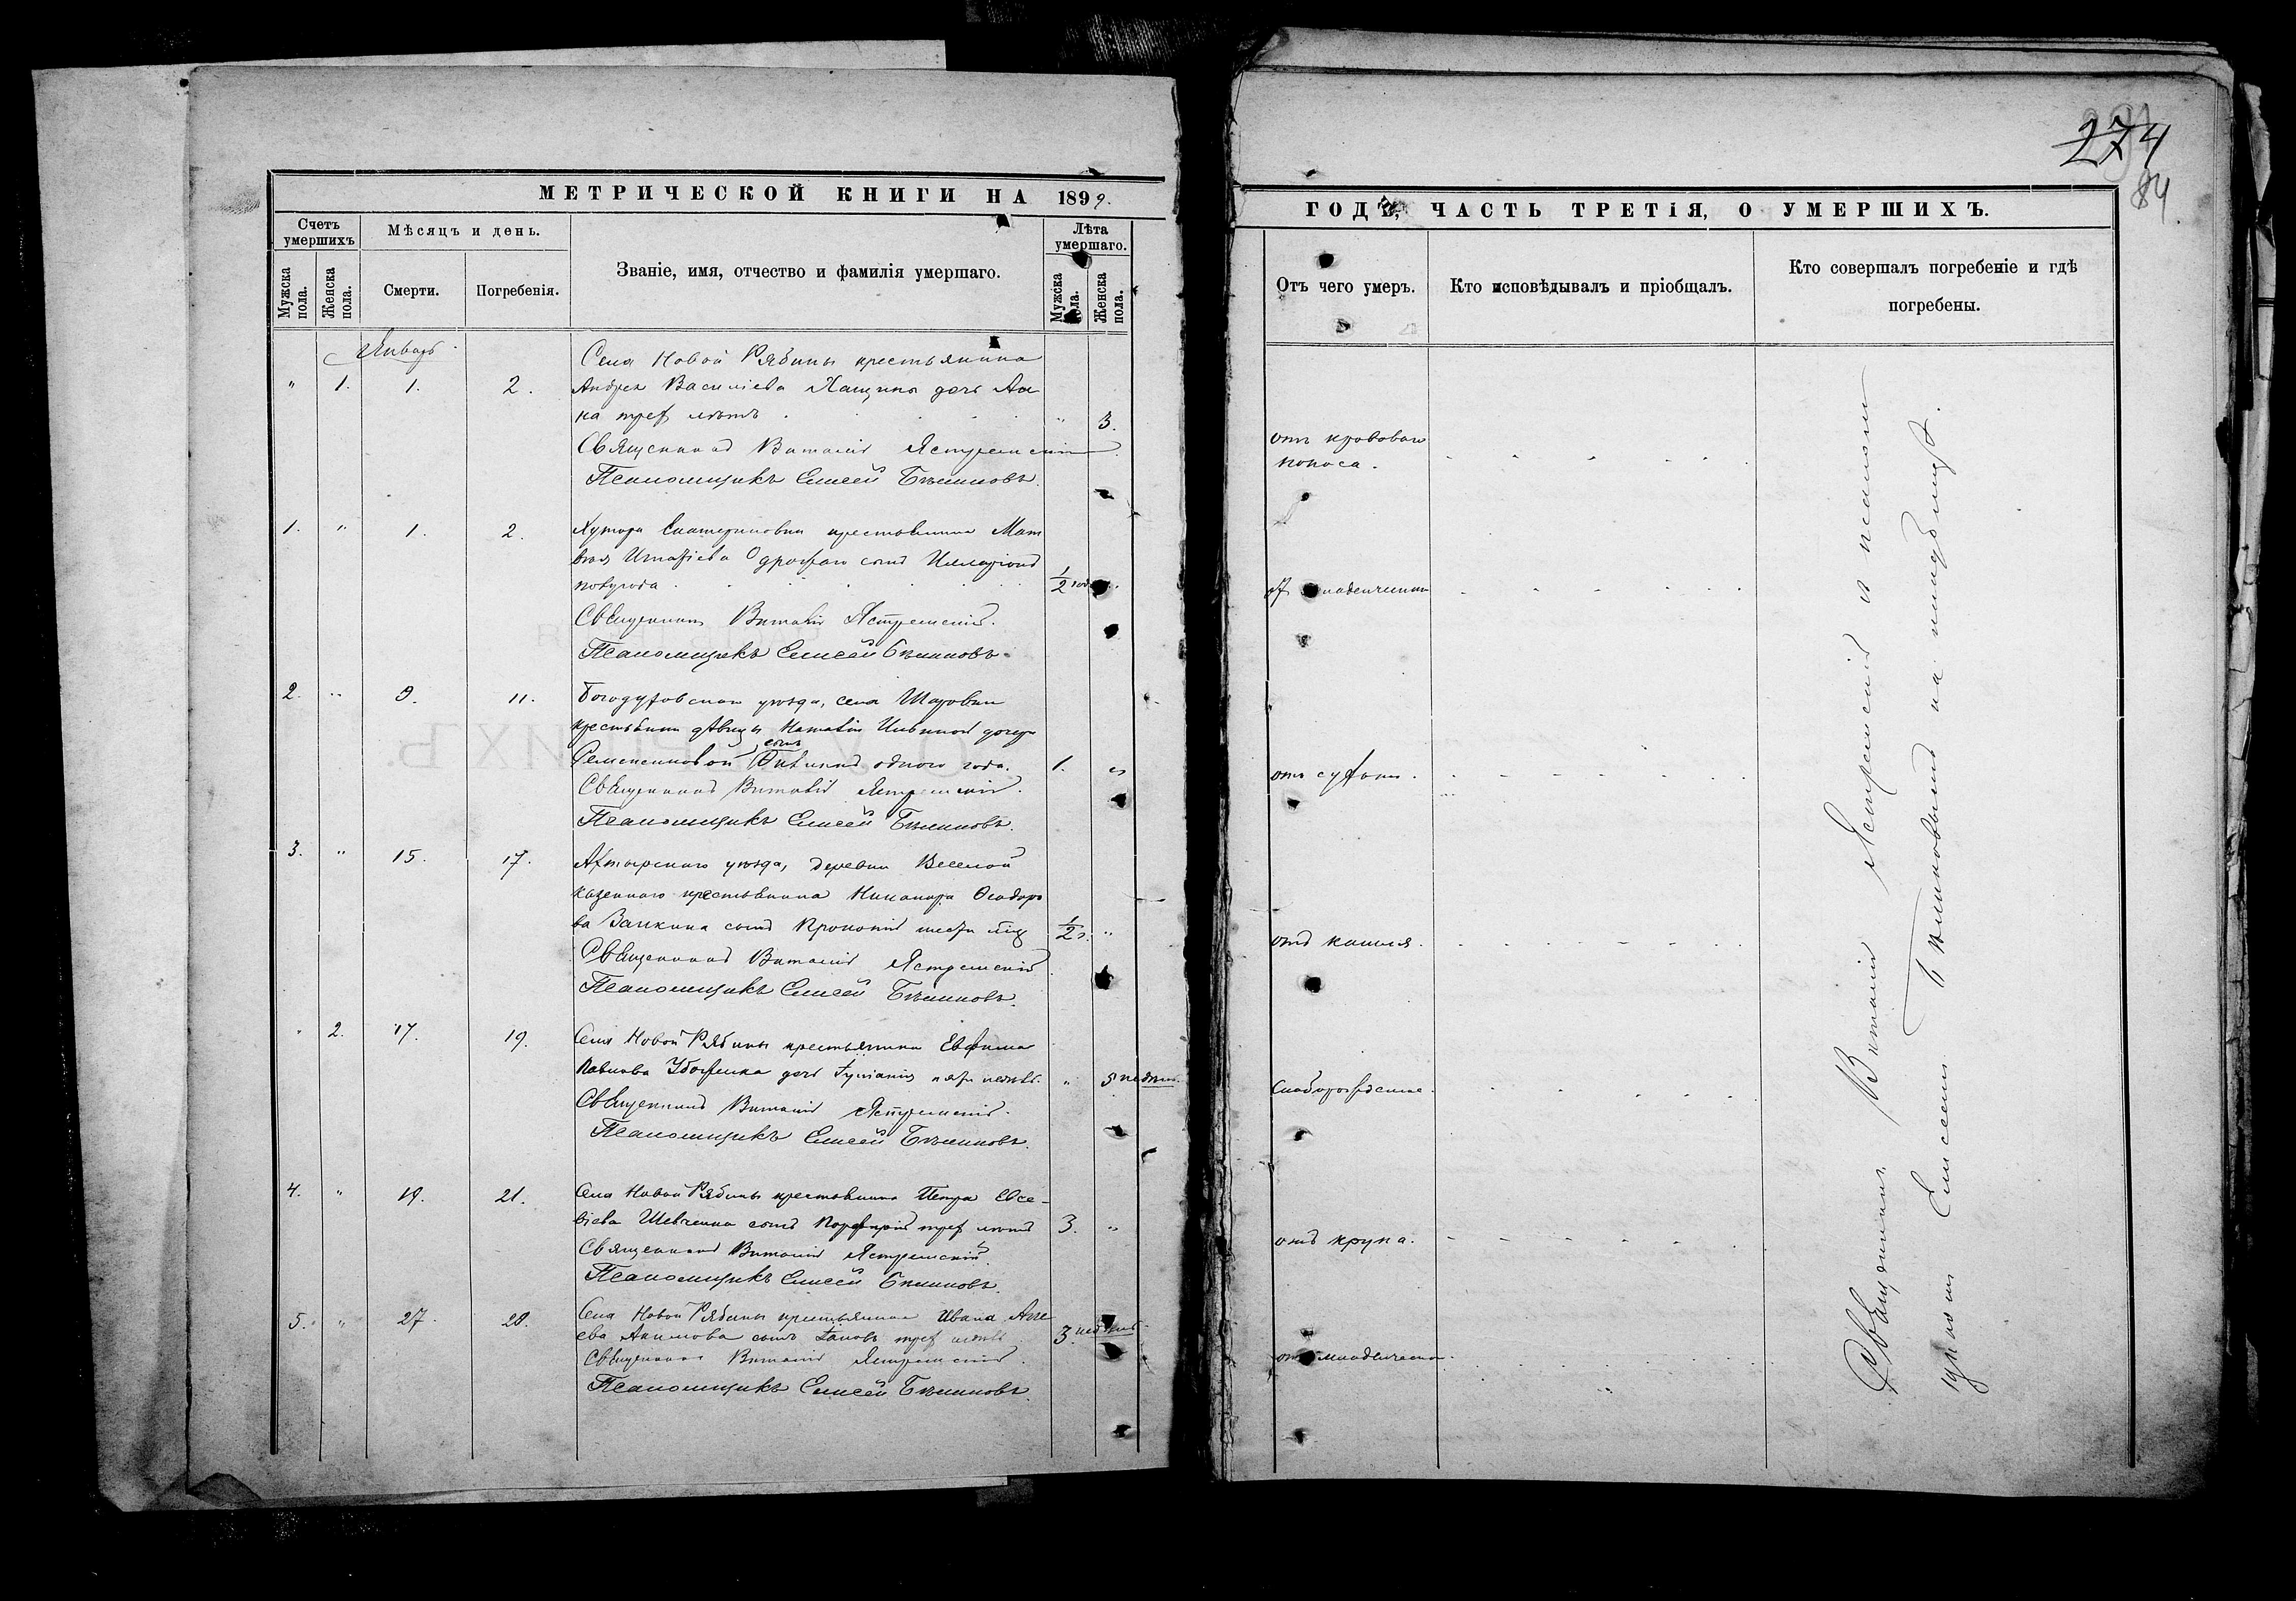 МЕТРИЧЕСКОЙ КНИГИ НА 1899.
Счетъ умершихъ
Мѣсяцъ и день.
Званіе, имя, отчество и фамилія умершаго.
Лѣта умершаго.
Мужска пола.
Женска пола.
Смерти.
Погребенія.
Мужска пола.
Женска пола.
Январь
Села Новой Рябины крестьянина
" 1. 1. 2. Андрея Василіева дочь Ан
на трех лѣтъ " 3.
Священникъ Виталій Ястремскій
Псаломщикъ Елисей Бѣлиновъ.
1. " 1. 2. Хутора Екатериновки крестьянина Мат
вѣя сынъ Илларіонъ
полугода 1/2 года
Священникъ Виталій Ястремскій.
Псаломщикъ Елисей Бѣлиновъ.
2. " 9. 11. Богодуховскаго уѣзда, села Шаровки
крестьянки дѣвицы Наталіи дочери
сынъ
одного года. 1. "
Священникъ Виталій Ястремскій.
Псаломщикъ Елисей Бѣлиновъ.
3. " 15. 17. Ахтырскаго уѣзда, деревни Веселой
казеннаго крестьянина Никанора Ѳеодоро
ва Заикина сынъ Прокопій шести мѣс 1/2 г. "
Священникъ Виталій Ястремскій.
Псаломщикъ Елисей Бѣлиновъ.
" 2. 17. 19. Села Новой Рябины крестьянина Евфима
Павлова дочь Іуліанія пяти недѣль. " 5 недѣль.
Священникъ Виталій Ястремскій.
Псаломщикъ Елисей Бѣлиновъ.
4. " 19. 21. Села Новой Рябины крестьянина Петра Евсе-
віева Шевченка сынъ Порфирій трех лѣтъ 3. "
Священникъ Виталій Ястремскій.
Псаломщикъ Елисей Бѣлиновъ.
5. " 27. 28. Села Новой Рябины крестьянина Ивана Але
ева Акимова сынъ Іаковъ трех недѣль 3 недѣль
Священникъ Виталій Ястремскій.
Псаломщикъ Елисей Бѣлиновъ.
274
84
ГОДЪ, ЧАСТЬ ТРЕТІЯ, О УМЕРШИХЪ.
Отъ чего умеръ.
Кто исповѣдывалъ и пріобщалъ.
Кто совершалъ погребеніе и гдѣ погребены.
отъ кроваваго
поноса.
от младенческой
отъ сухоты.
отъ кашля.
Слаборожденіе.
отъ крупа.
от младенческой.
Священникъ Виталій Ястремскій с псалом
щикомъ Елисеемъ Бѣлиновымъ на кладбищѣ.